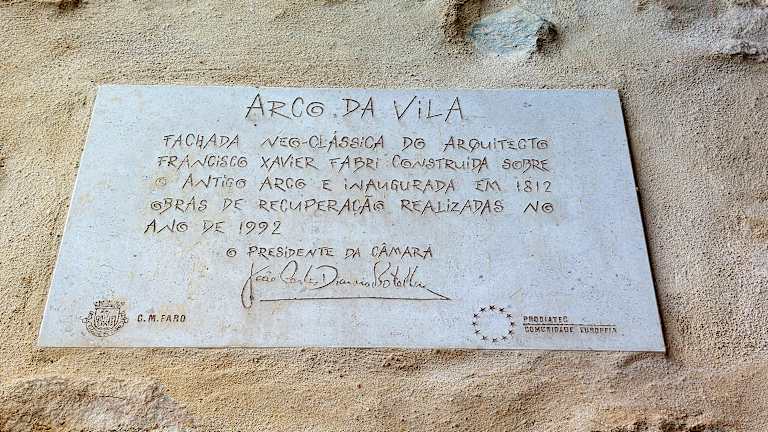 ARCO DA VILA
FACHADA NEO-CLÁSSICA DO ARQUITECTO
FRANCISCO XAVIER FABRI CONSTRUIDA SOBRE
O ANTIGO ARCO E INAUGURADA EM 1812
OBRAS DE RECUPERAÇÃO REALIZADAS NO
ANO DE 1992
O PRESIDENTE DA CÂMARA
João Carlos Botelheiro
C.M. FARO
PRODIATEC
COMUNIDADE EUROPEIA